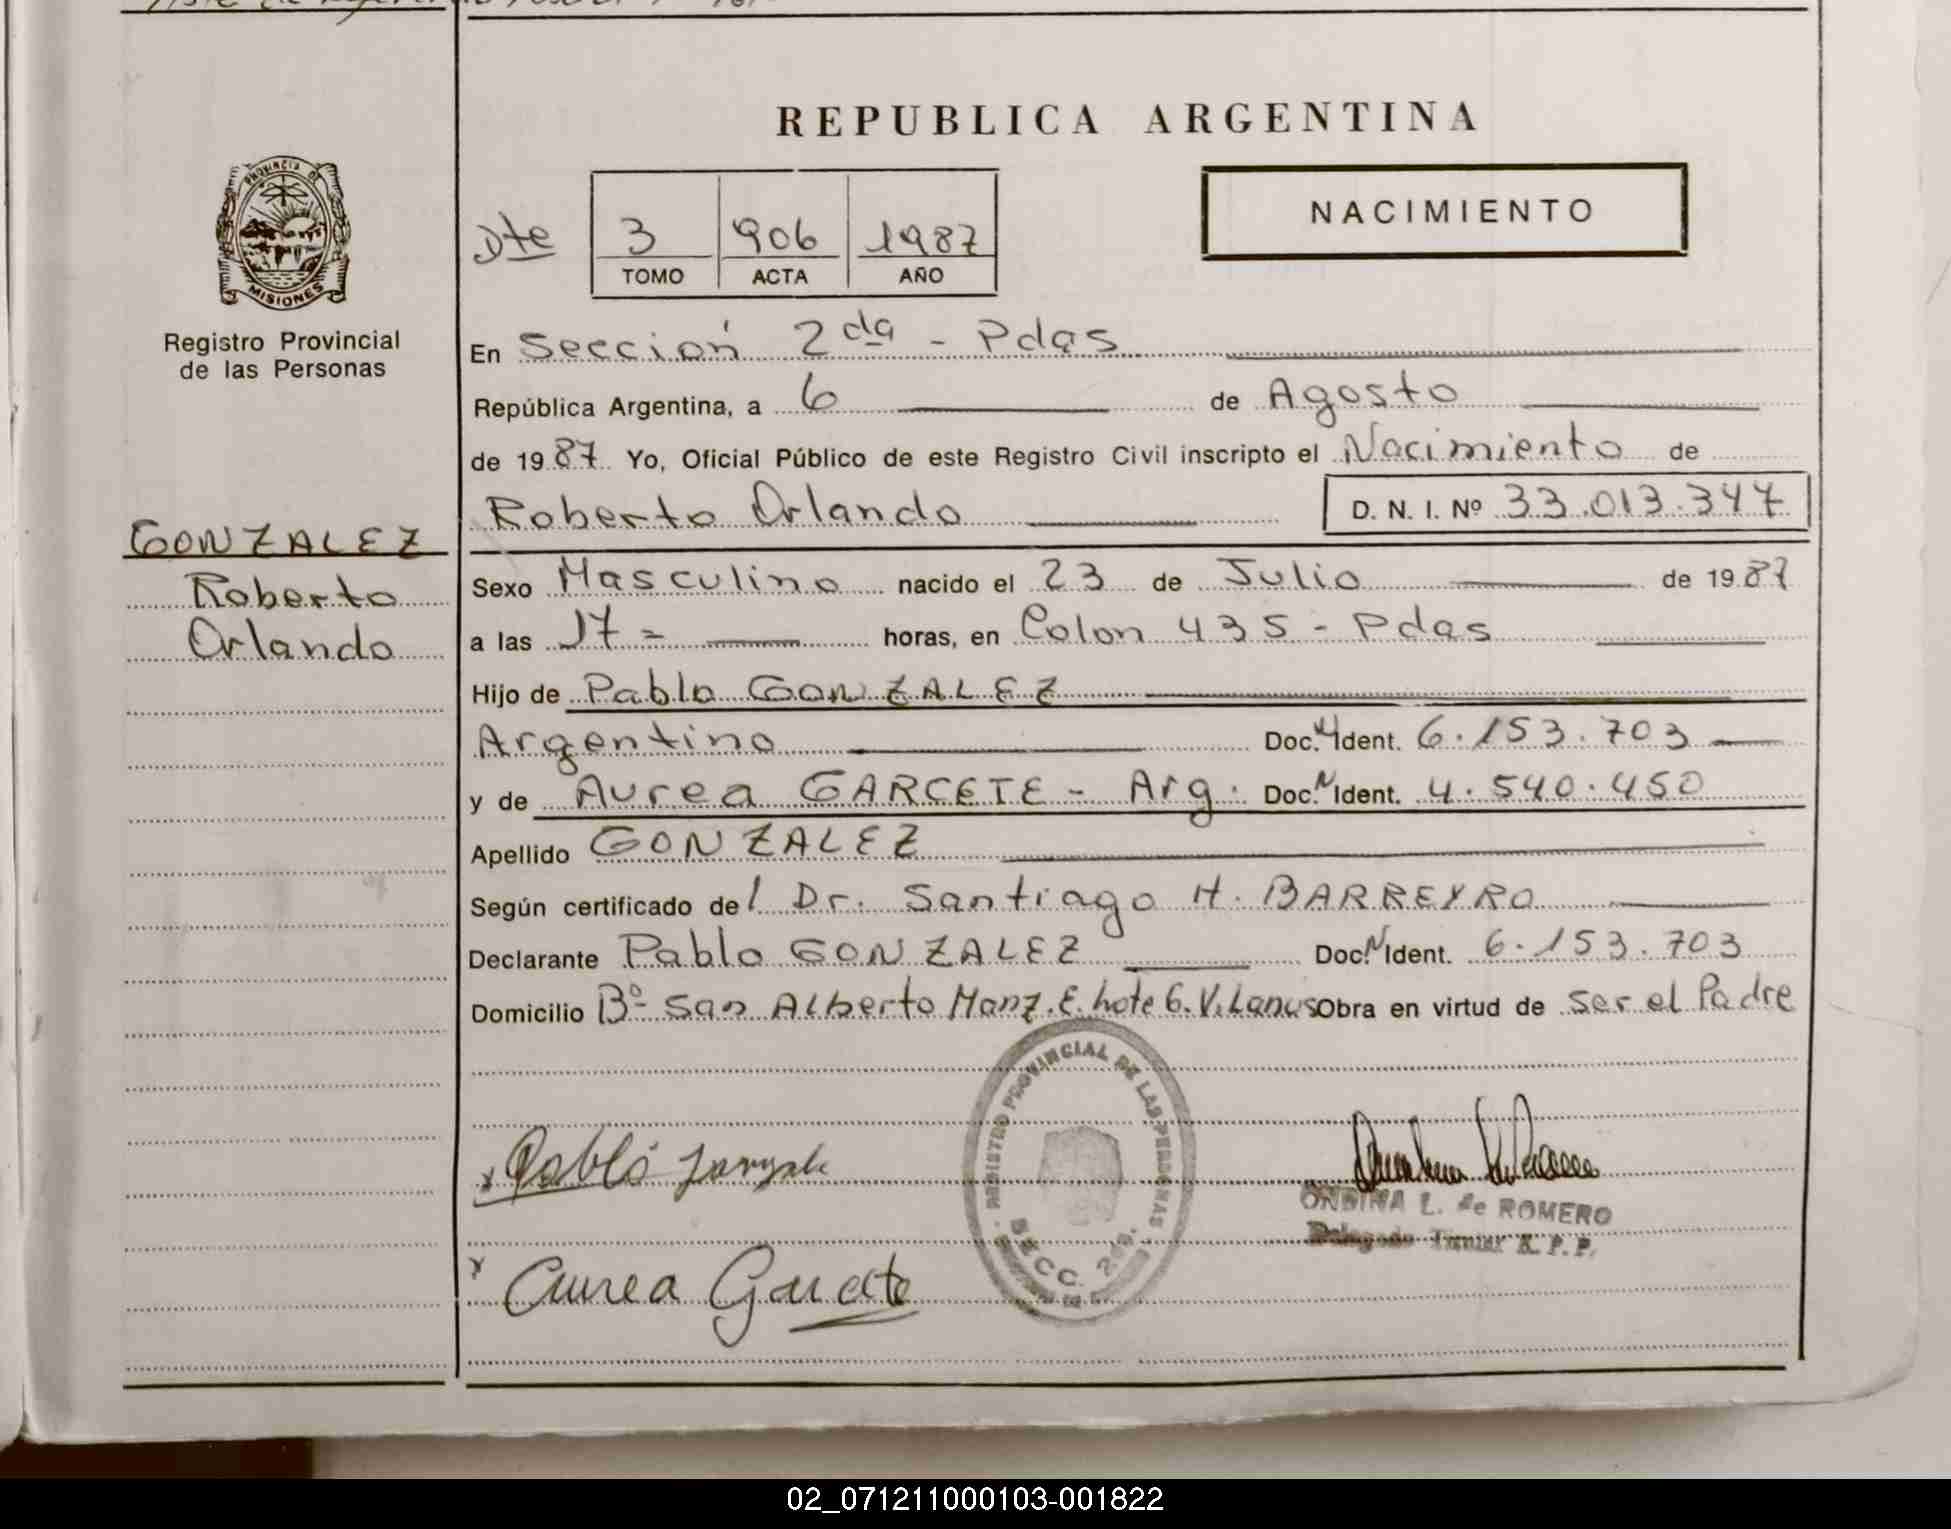 REPUBLICA ARGENTINA
PROVINCIA DE
MISIONES
Registro Provincial
de las Personas
NACIMIENTO
Dte 3 906 1987
TOMO ACTA AÑO
En Sección 2da - Pdas
República Argentina, a 6 de Agosto
de 1987 Yo, Oficial Público de este Registro Civil inscripto el Nacimiento de
Roberto Orlando D. N. I. Nº 33.013.347
GONZALEZ
Roberto
Orlando
Sexo Masculino nacido el 23 de Julio de 1987
a las 17 = horas, en Colon 435 - Pdas
Hijo de Pablo GONZALEZ
Argentino Doc. N Ident. 6.153.703
y de Aurea GARCETE - Arg. Doc. N Ident. 4.540.450
Apellido GONZALEZ
Según certificado del Dr. Santiago H. BARREYRO
Declarante Pablo GONZALEZ Doc. N Ident. 6.153.703
Domicilio Bº San Alberto Manz. E. Lote 6. V. Lanus Obra en virtud de ser el Padre
REGISTRO PROVINCIAL DE LAS PERSONAS
SECC. 2da.
x Pablo Gonzale
ONDINA L. de ROMERO
Delegado Titular R. P. P.
x Aurea Garcete
02_071211000103-001822